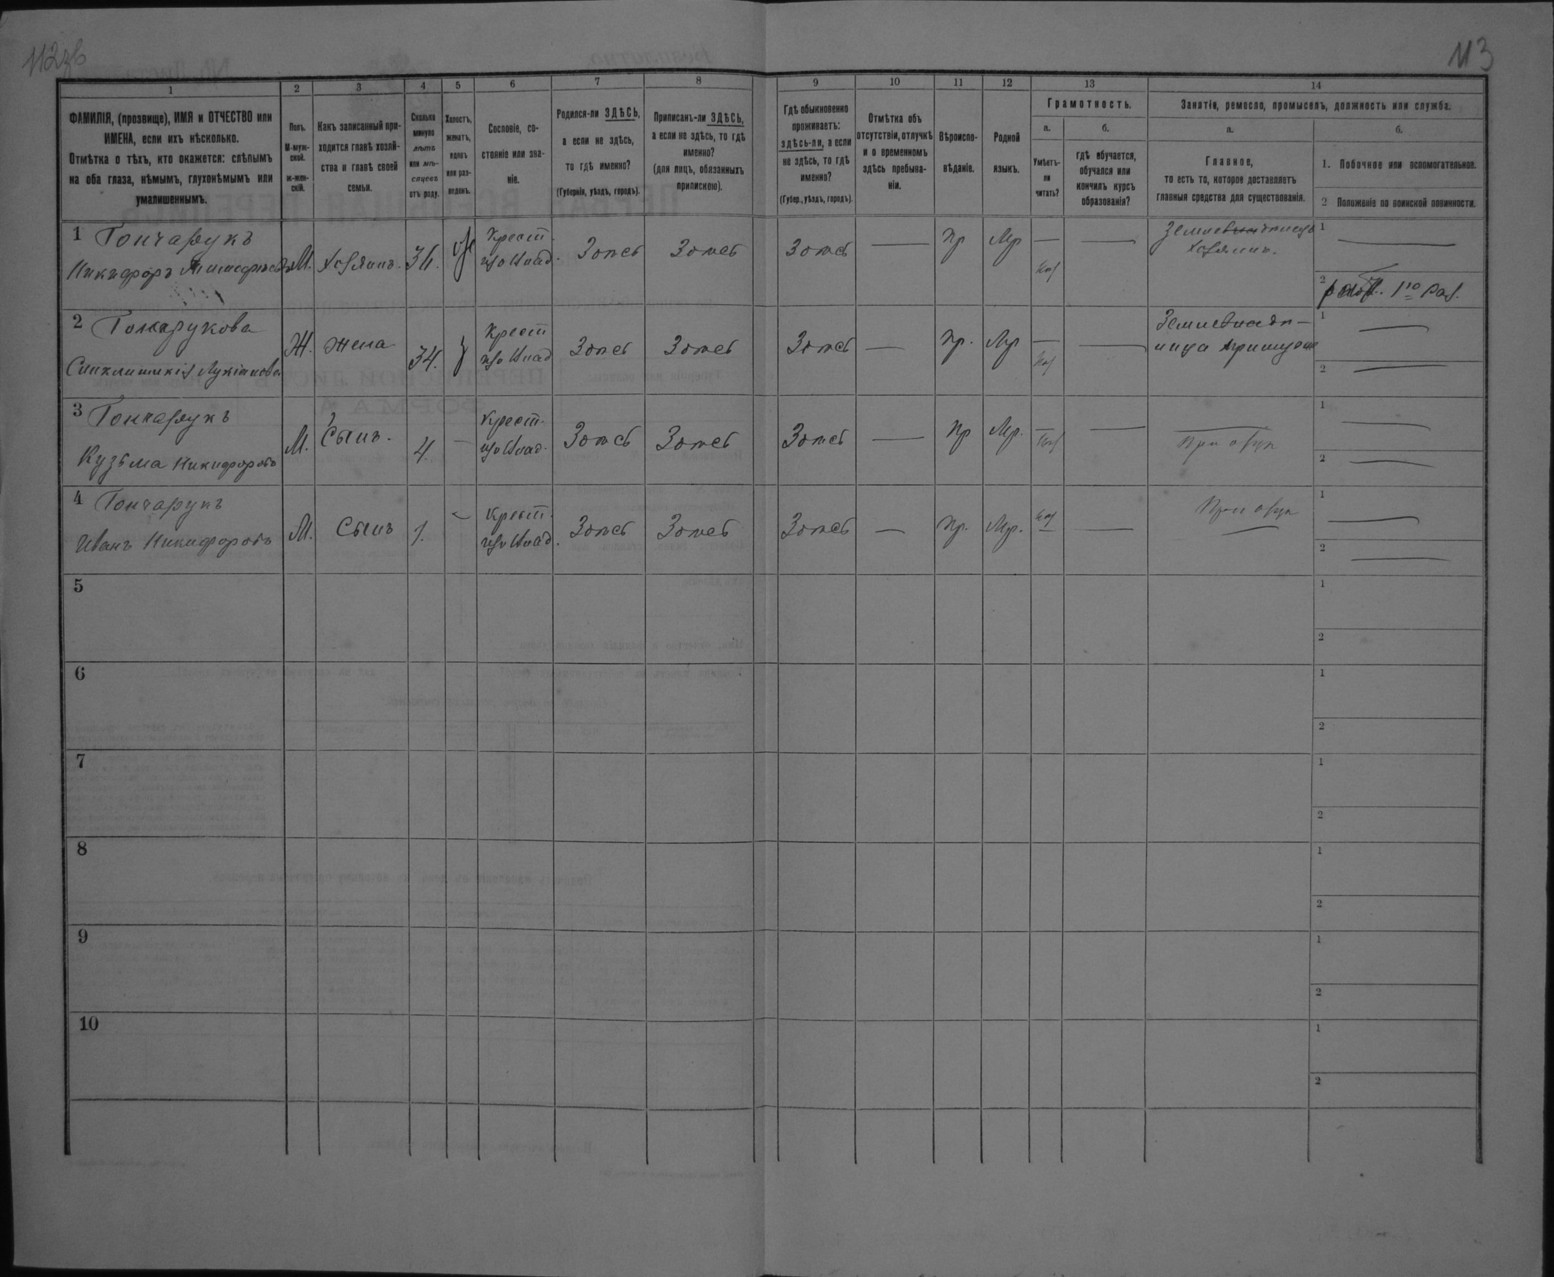 112об
113
1
2
3
4
5
6
7
8
9
10
11
12
13
14
ФАМИЛІЯ, (прозвище), ИМЯ и ОТЧЕСТВО или
ИМЕНА, если ихъ нѣсколько.
Отмѣтка о тѣхъ, кто окажется: слѣпымъ
на оба глаза, нѣмымъ, глухонѣмымъ или
умалишеннымъ.
Полъ.
М-муж-
ской.
Ж-жен-
скій.
Какъ записанный при-
ходится главѣ хозяй-
ства и главѣ своей
семьи.
Сколько
минуло
лѣтъ
или мѣ-
сяцевъ
отъ роду.
Холостъ,
женатъ,
вдовъ
или раз-
веденъ.
Сословіе, со-
стояніе или зва-
ніе.
Родился-ли ЗДѢСЬ,
а если не здѣсь,
то гдѣ именно?
(Губернія, уѣздъ, городъ).
Приписанъ-ли ЗДѢСЬ,
а если не здѣсь, то гдѣ
именно?
(для лицъ, обязанныхъ
припискою).
Гдѣ обыкновенно
проживаетъ:
здѣсь-ли, а если
не здѣсь, то гдѣ
именно?
(Губер., уѣздъ, городъ).
Отмѣтка объ
отсутствіи, отлучкѣ
и о временномъ
здѣсь пребыва-
ніи.
Вѣроиспо-
вѣданіе.
Родной
языкъ.
Грамотность.
а.
б.
Умѣетъ-
ли
читать?
гдѣ обучается,
обучался или
кончилъ курсъ
образованія?
Занятіе, ремесло, промыселъ, должность или служба.
а.
б.
Главное,
то есть то, которое доставляетъ
главныя средства для существованія.
1. Побочное или вспомогательное.
2 Положеніе по воинской повинности.
1 Гончарукъ
Никифоръ М. Хозяинъ. 36. Крест. Здѣсь Здѣсь Здѣсь Пр Мр
Хозяинъ.
1
2
2 Гончарукова
Лукіанова Ж. Жена 34. Крест Здѣсь Здѣсь Здѣсь Пр. Мр
1
2
3 Гончарукъ
Кузьма Никифоровъ М. Сынъ. 4 Крест. Здѣсь Здѣсь Здѣсь Пр Мр.
При отцѣ
1
2
4 Гончарукъ
Иванъ Никифоровъ М. Сынъ 1. Крест. Здѣсь Здѣсь Здѣсь Пр. Мр.
При отцѣ
1
2
5
1
2
6
1
2
7
1
2
8
1
2
9
1
2
10
1
2